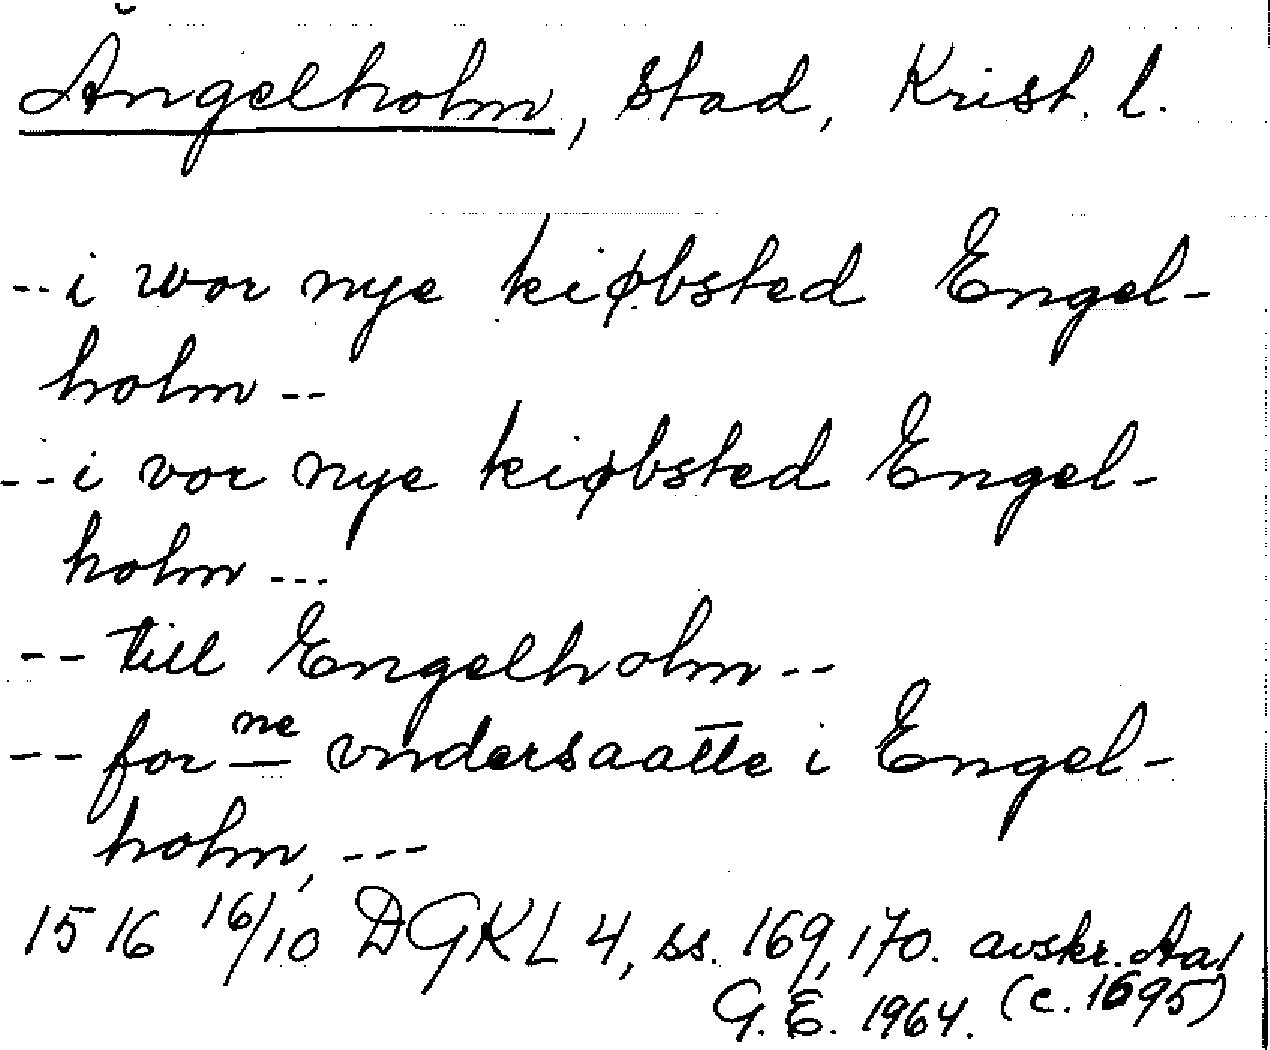 Ängelholm, stad, Krist. l.
-- i wor nye kiøbsted Engel-
holm --
-- i vor nye kiøbsted Engel-
holm ---
-- till Engelholm --
-- for ne vndersaatte i Engel-
holm, ---
1516 16/10 DGKL 4, ss. 169, 170. avskr. Aa1
(c. 1695)
G. E. 1964.